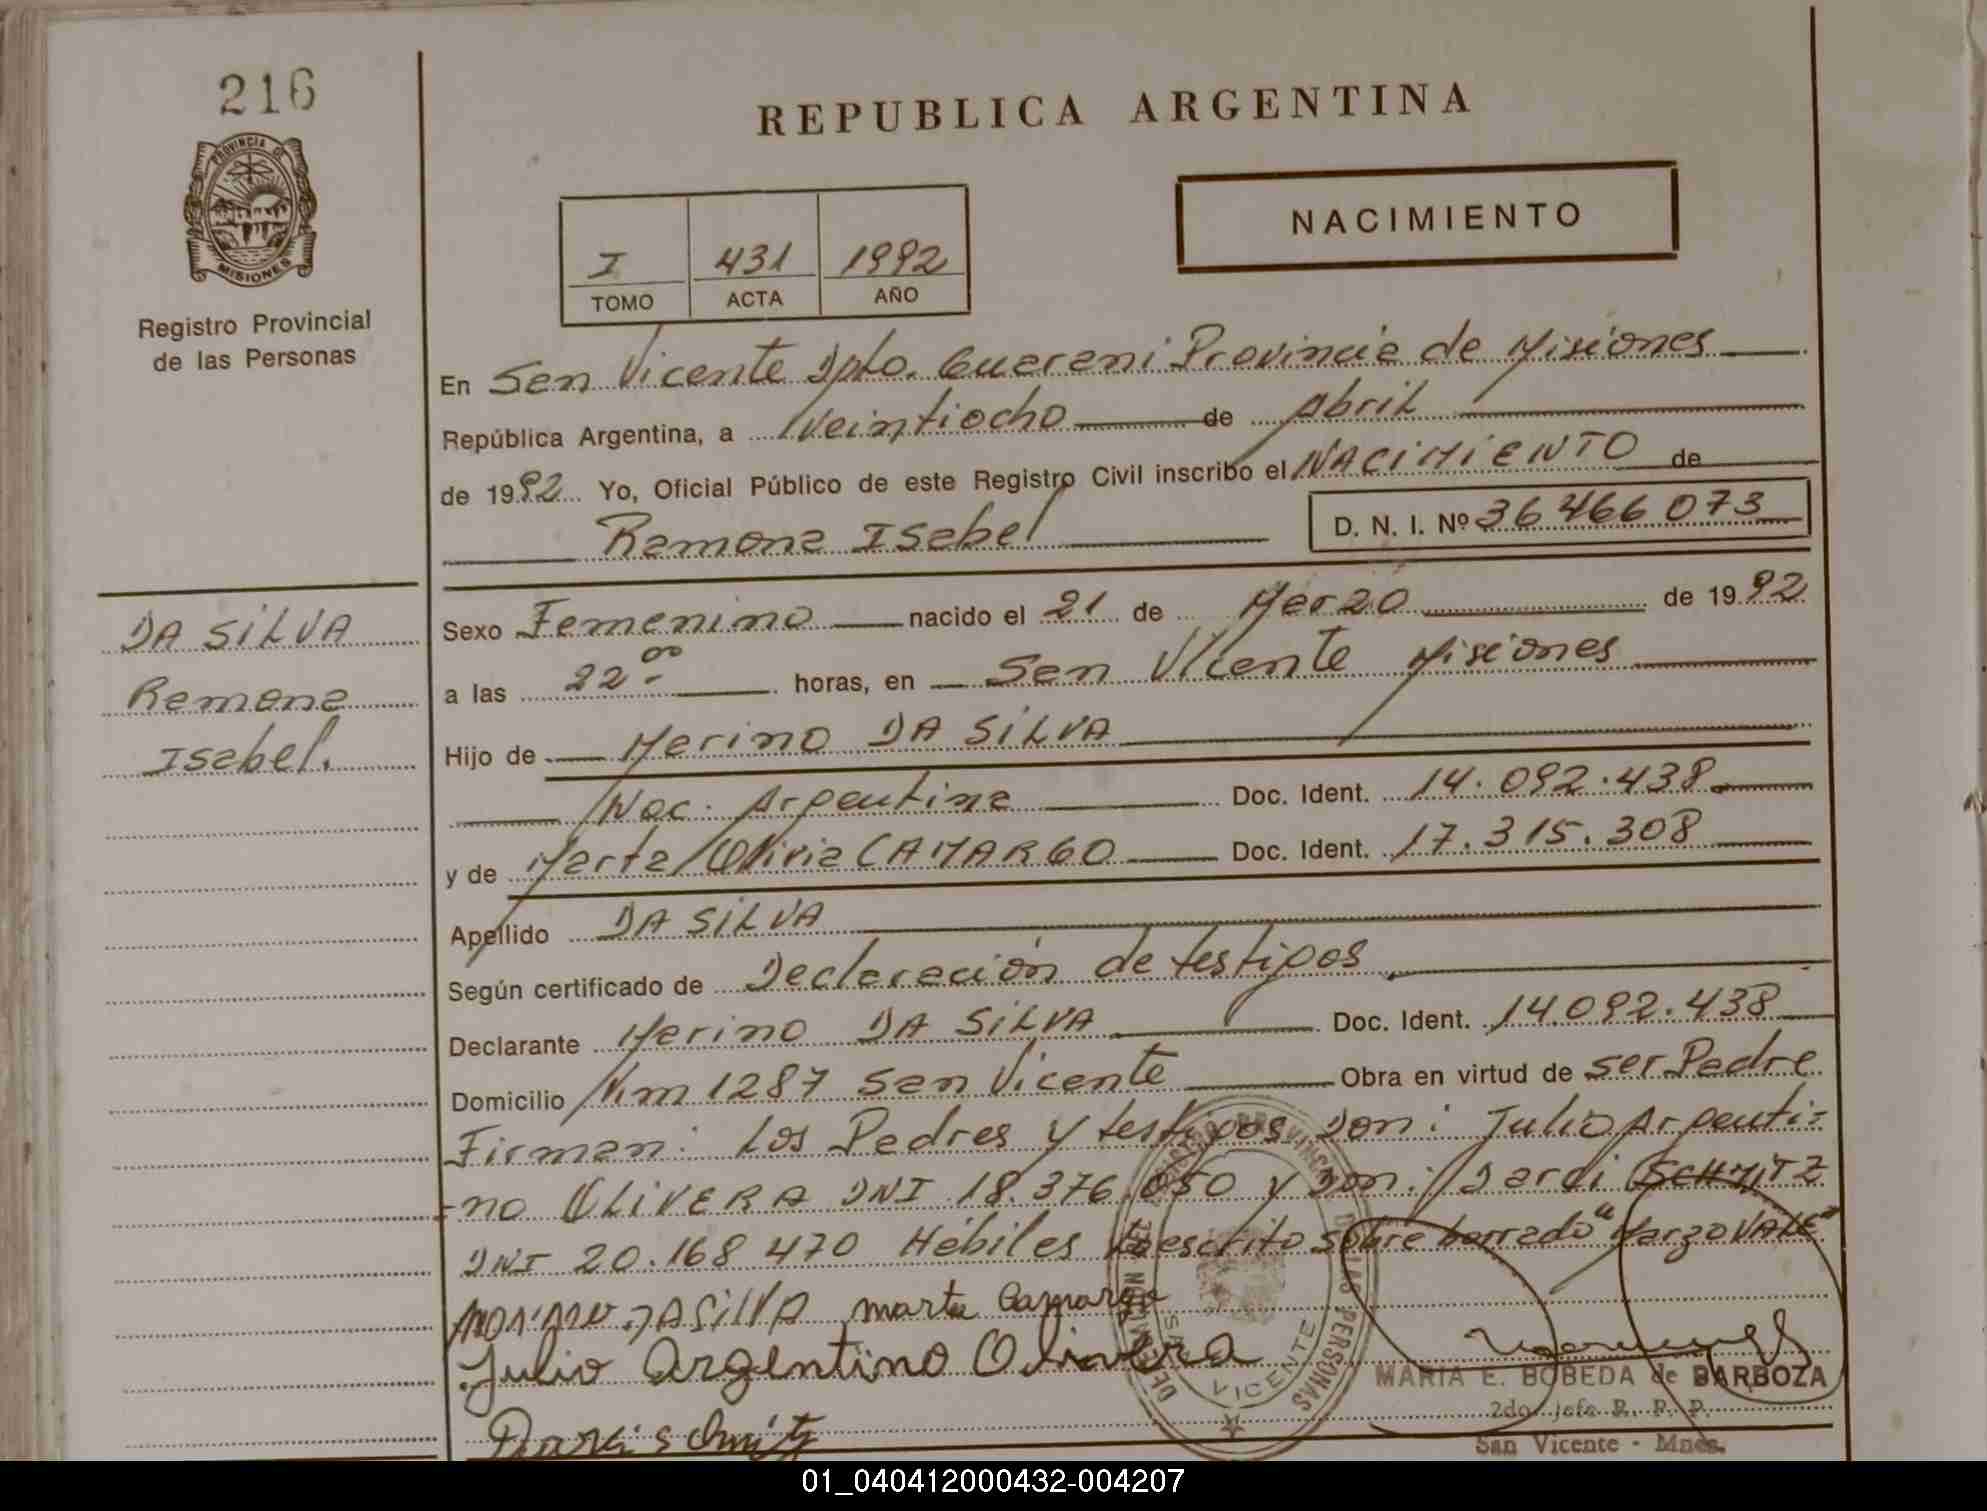 216
PROVINCIA DE
MISIONES
Registro Provincial
de las Personas
REPUBLICA ARGENTINA
NACIMIENTO
I 431 1992
TOMO ACTA AÑO
En San Vicente Dpto. Guarani Provincia de Misiones
República Argentina, a Veintiocho de Abril
de 1992 Yo, Oficial Público de este Registro Civil inscribo el NACIMIENTO de
Ramona Isabel
D. N. I. Nº 36 466 073
DA SILVA
Ramona
Isabel.
Sexo Femenino nacido el 21 de Marzo de 1992
a las 22 00 horas, en San Vicente Misiones
Hijo de Marino DA SILVA
Nac. Argentina Doc. Ident. 14.092.438
y de Marta Oliria CAMARGO Doc. Ident. 17.315.308
Apellido DA SILVA
Según certificado de Declaración de testigos
Declarante Marino DA SILVA Doc. Ident. 14.092.438
Domicilio Km 1287 San Vicente Obra en virtud de ser Padre
Firman: Los Padres y testigos Don: Julio Argenti=
=no OLIVERA DNI 18.376.050 y Don: Darci SCHMITZ
DNI 20.168 470 Hábiles Lo escrito sobre borrado "Marzo VALE"
MARINO DASILVA marta Camargo
Julio Argentino Olivera
Darci Schmitz
REGISTRO PROVINCIAL DE LAS PERSONAS
SAN VICENTE
MARIA E. BOBEDA de BARBOZA
2do. Jefe R. P. P.
San Vicente - Mnes.
01_040412000432-004207